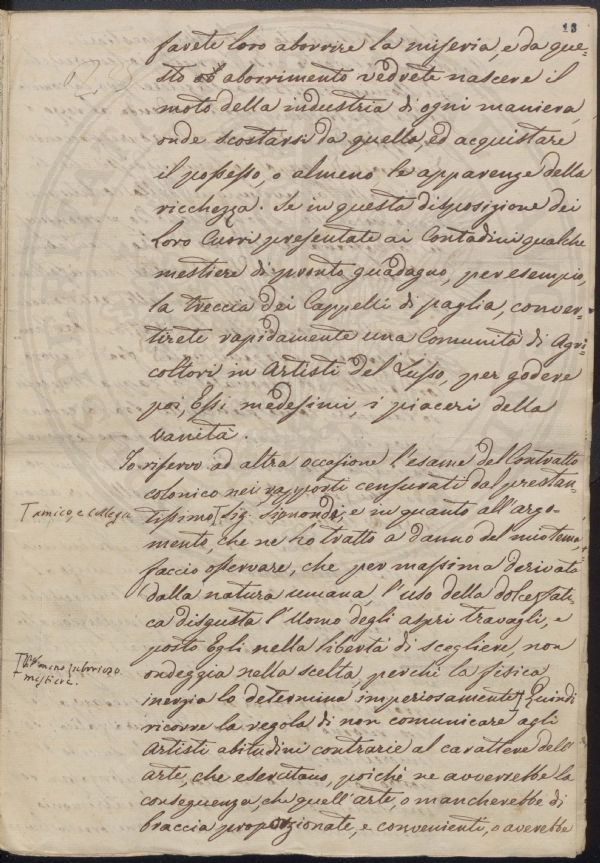 13
farete loro aborrire la miseria, e da que=
sto aborrimento vedrete nascere il
moto della industria di ogni maniera,
onde scostarsi da quella, ed acquistare
il possesso, o almeno le apparenze della
ricchezza. Se in questa disposizione dei
loro Cuori presentate ai Contadini qualche
mestiere di pronto guadagno, per esempio,
la treccia dei Cappelli di paglia, conver=
tirete rapidamente una Comunità di Agri=
coltori in Artisti del Lusso, per godere
poi, Essi medesimi, i piaceri della
vanità.
Io riservo ad altra occasione l'esame del Contratto
colonico nei rapporti censurati dal prestan=
amico, e collega
tissimo Sig. Sismondi, e in quanto all'argo=
mento, che ne ho tratto a danno del mio tema,
faccio osservare, che per massima derivata
dalla natura umana, l'uso della dolce fati=
ca disgusta l'Uomo degli aspri travagli, e
posto Egli nella libertà di scegliere, non
ondeggia nella scelta, perchè la fisica
meno laborioso
mestiere.
inerzia lo determina imperiosamente. Quindi
ricorre la regola di non comunicare agli
Artisti abitudini contrarie al carattere dell'
arte, che esercitano, poichè ne avverrebbe la
conseguenza, che quell'arte, o mancherebbe di
braccia proporzionate, e convenienti, o averebbe